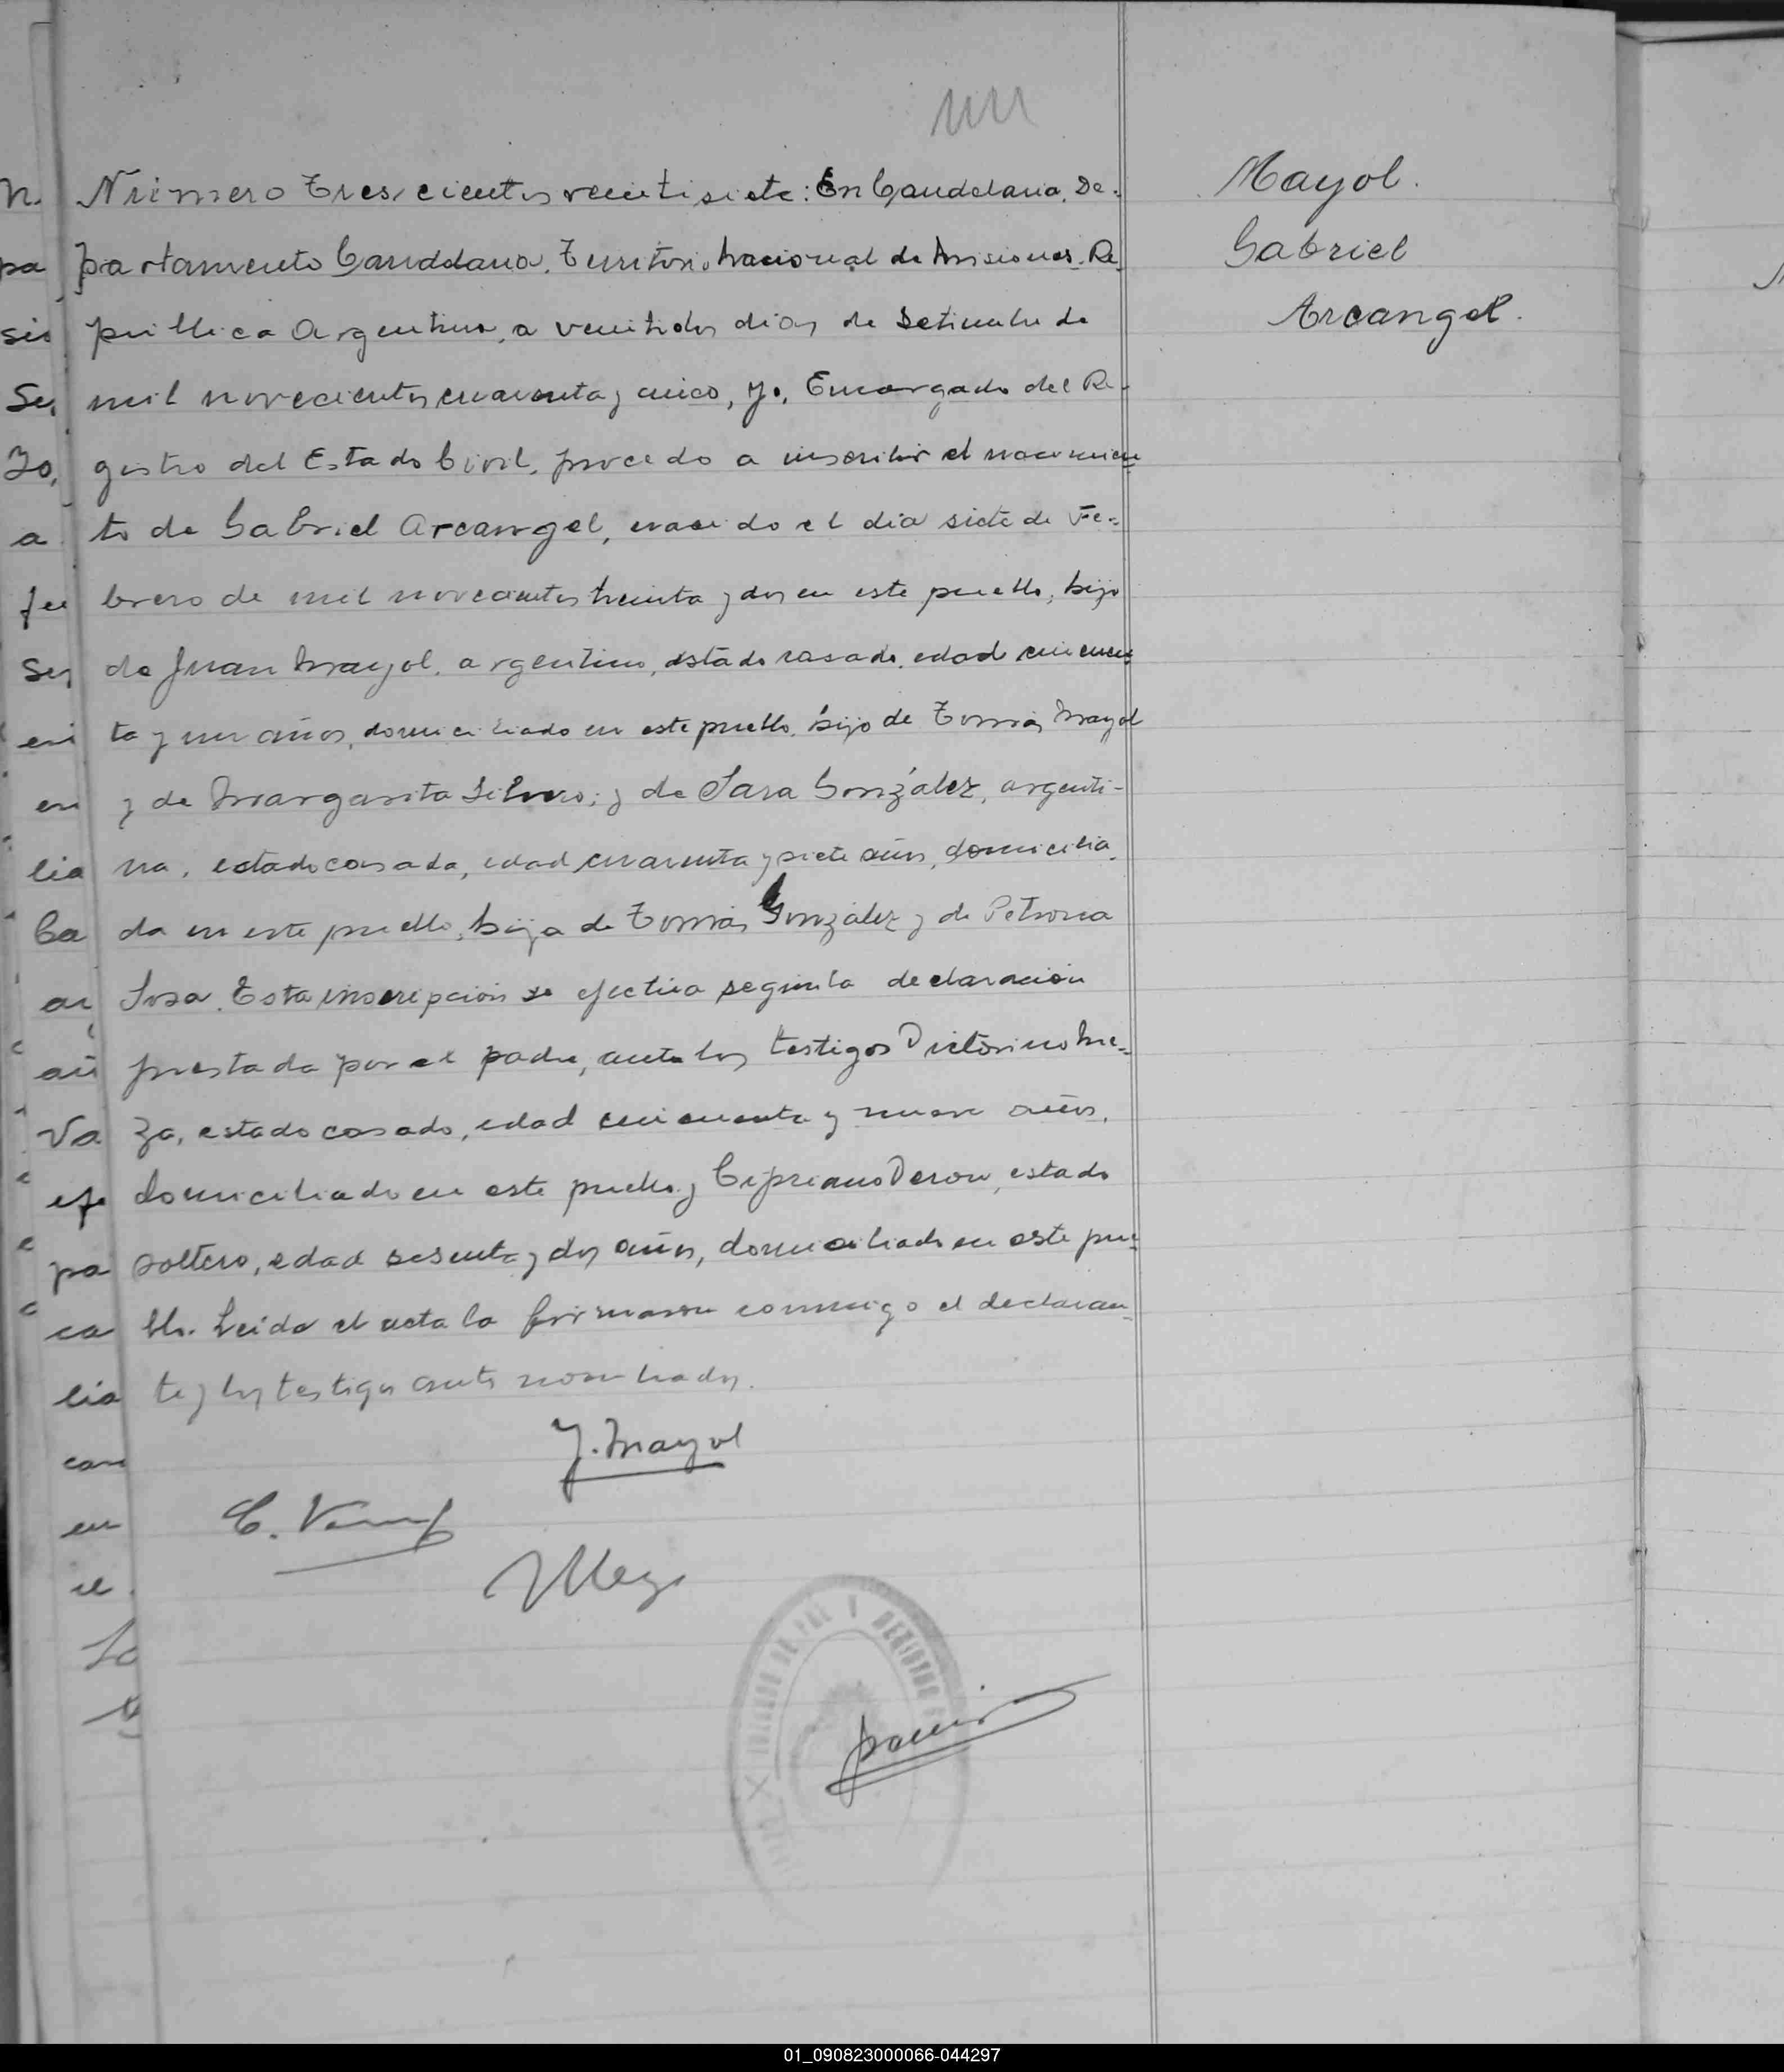 Mayol.
Gabriel
Arcangel.
Número Trescientos veintisiete: En Candelaria, De-
partamento Candelaria, Territorio Nacional de Misiones, Re
pública Argentina, a veintidos dias de Setiembre de
mil novecientos cuarenta y cinco, Yo, Encargado del Re-
gistro del Estado Civil, procedo a inscribir el nacimien
to de Gabriel Arcangel, nacido el dia siete de Fe-
brero de mil novecientos treinta y dos en este pueblo, hijo
de Juan Mayol, argentino, estado casado, edad cincuen
ta y un años, domiciliado en este pueblo, hijo de Tomás Mayol
y de Margarita Silvero; y de Sara González, argenti-
na, estado casada, edad cuarenta y siete años, domicilia
da en este pueblo, hija de Tomás González y de Petrona
Sosa. Esta inscripción se efectúa según la declaración
prestada por el padre, ante los testigos Victorino Me-
za, estado casado, edad cincuenta y nueve años,
domiciliado en este pueblo y Cipriano Veron, estado
soltero, edad sesenta y dos años, domiciliado en este pue
blo. Leida el acta la firmaron conmigo el declaran
te y los testigos ante nombrados.
J. Mayol
C. Veron
VMeza
JUZGADO DE PAZ Y REGISTRO
n.
pa
sio
Se
Yo,
a
fe
Se
en
en
lia
Ca
ar
añ
Va
efe
pa
ca
lia
con
en
el
01_090823000066-044297